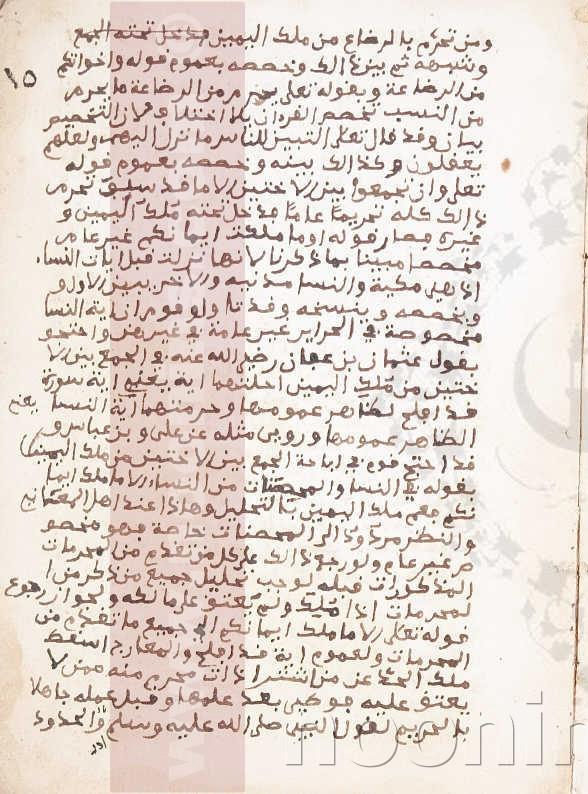 ١٥
ومن تحرم بالرضاع من ملك اليمين فدخل تحته الجمع
وشبهه ثم بين ذالك وخصصه بعموم قوله واخواتكم
من الرضاعة وبقوله تعلى يحرم من الرضاعة ما يحرم
من النسب تخصص القرءان بلا اختلاف لان التخصيص
بيان وقد قال تعلى لتبين للناس ما نزل اليهم ولعلهم
يعقلون وكذالك بينه وخصصه بعموم قوله
تعلى وان تجمعوا بين الاختين الا ما قد سلف تحرم
ذالك كله تحريما عاما فدخل تحته ملك اليمين و
غيره فصار قوله او ما ملكت ايمانكم غير عام
مخصصا مبينا بما ذكرنا لانها نزلت قبل ايات النساء
اذ هي مكية والنسا مدنية والآخر يبين الاول و
يخصصه وينسخه وقد تاولو قوم ان اية النسا
مخصوصة في الحراير غير عامة في غيرهن واحتجو
بقول عثمان بن عفان رضي الله عنه في الجمع بين الا
ختين من ملك اليمين احلتهما اية يعني اية سورة
قد افلح لظاهر عمومها وحرمتهما آية النسا يعني
الظاهر عمومها وروي مثله عن علي وبن عباس و
قد احتج قوم في اباحة الجمع بين الاختين من ملك اليمين
بقوله في النسا والمحصنات من النساء الا ما ملك ايما
نكم فعم ملك اليمين بالتحليل وهاذا عند اهل المعاني
والنظر مردود الى المحصنات خاصة فهو مخصو
ص غير عام ولو رجع ذالك على كل من تقدم من المحرمات
المذكورات قبله لوجب تحليل جميع من ذكر من ا
لمحرمات اذا ملك ولم يعتق على مالكه ولجواز رجوع
قوله تعلى الا ما ملك ايمانكم الى جميع ما تقدم من
المحرمات ولعموم اية قد افلح والمعارج اسقط
ملك الحد عن من اشترا ذات محرم منه ممن لا
يعتق عليه فوطئ بعد علمها وقبل عمله جاهلا
بالتحريم لقول النبي صلى الله عليه وسلم
noornin